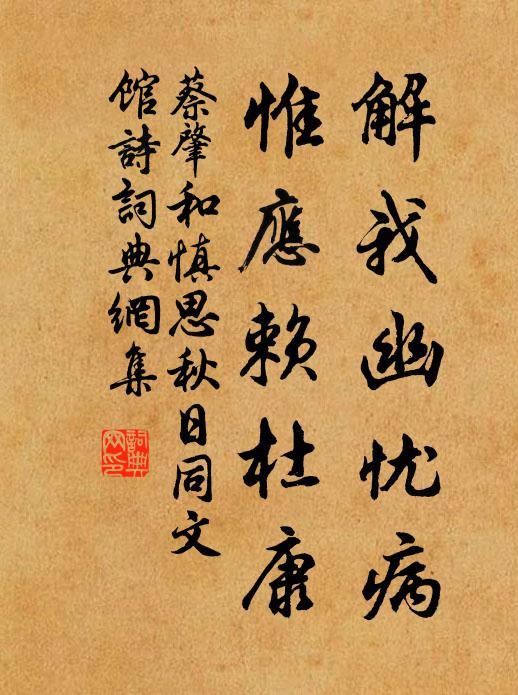 解我幽忧病
惟應賴杜康
蔡肇和慎思秋日同文
館詩詞典網集
詞典
网印